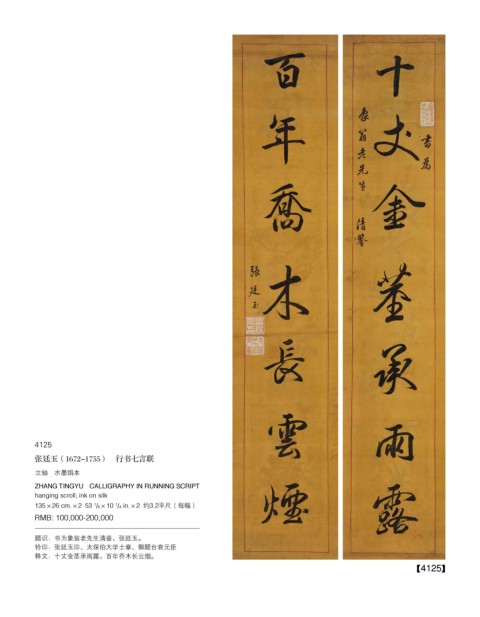 十丈金莖承雨露
書為
象翁老先生 清鑒
百年喬木長雲煙
張廷玉
4125
张廷玉（1672-1755） 行书七言联
立轴 水墨绢本
ZHANG TINGYU CALLIGRAPHY IN RUNNING SCRIPT
hanging scroll; ink on silk
135 × 26 cm. × 2 53 1/8 × 10 1/4 in. × 2 约3.2平尺（每幅）
RMB: 100,000-200,000
题识：书为象翁老先生清鉴。张廷玉。
钤印：张廷玉印、太保伯大学士章、御题台衮元臣
释文：十丈金茎承雨露，百年乔木长云烟。
【4125】